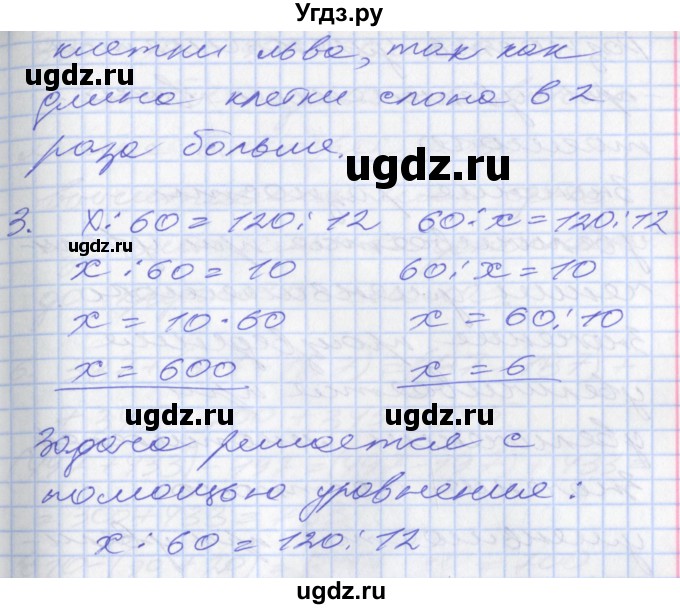 Угдз.ру
клетки льва, так как
ugdz.ru
длина клетки слона в 2
раза больше.
ugdz.ru
3. x : 60 = 120 : 12 60 : x = 120 : 12
ugdz.ru
x : 60 = 10 60 : x = 10
x = 10 · 60 x = 60 : 10
x = 600 x = 6
ugdz.ru ugdz.ru
Задача решается с
помощью уравнения:
x : 60 = 120 : 12
ugdz.ru